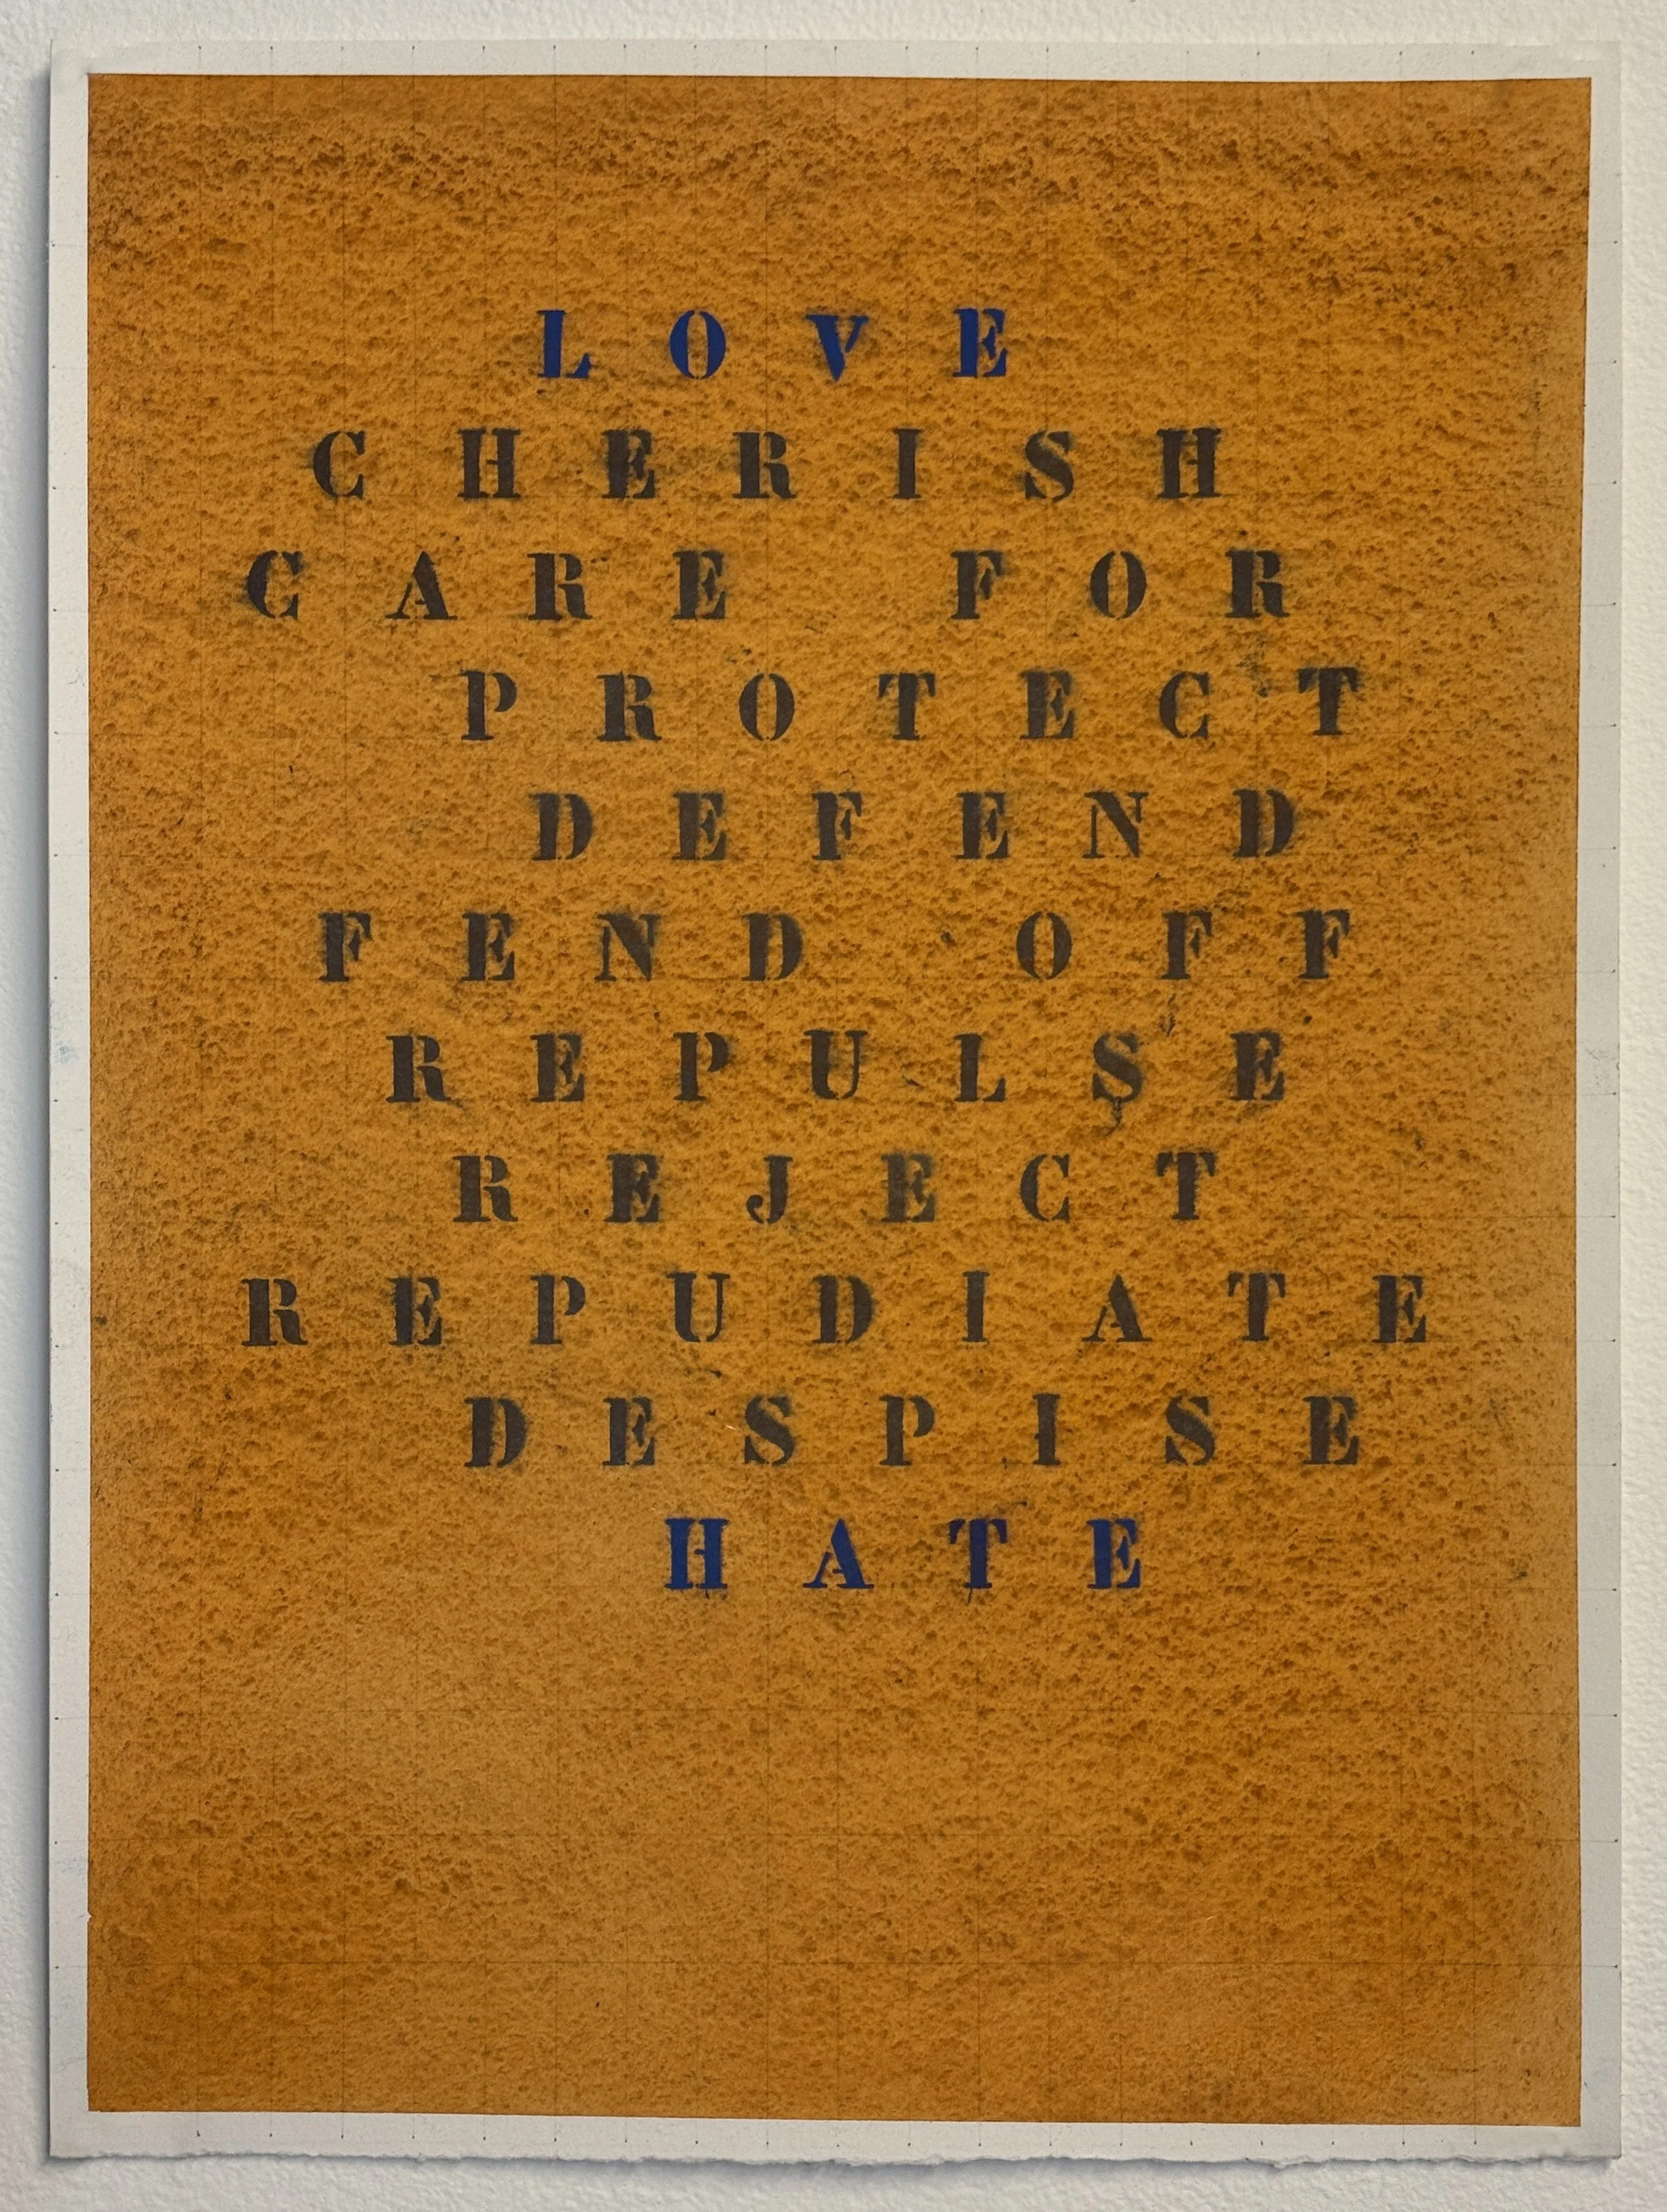 LOVE
CHERISH
CARE FOR
PROTECT
DEFEND
FEND OFF
REPULSE
REJECT
REPUDIATE
DESPISE
HATE